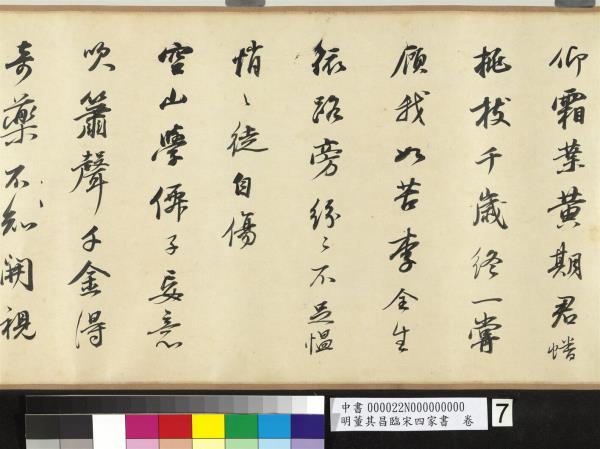 仰霜葉黃期君蟠
桃枝千歲終一嘗
顧我如苦李全生
依路旁紛〻不足慍
悄〻徒自傷
空山學僊子妄意
吹簫聲千金得
奇藥不知開視
中書 000022N000000000
明董其昌臨宋四家書 卷
7